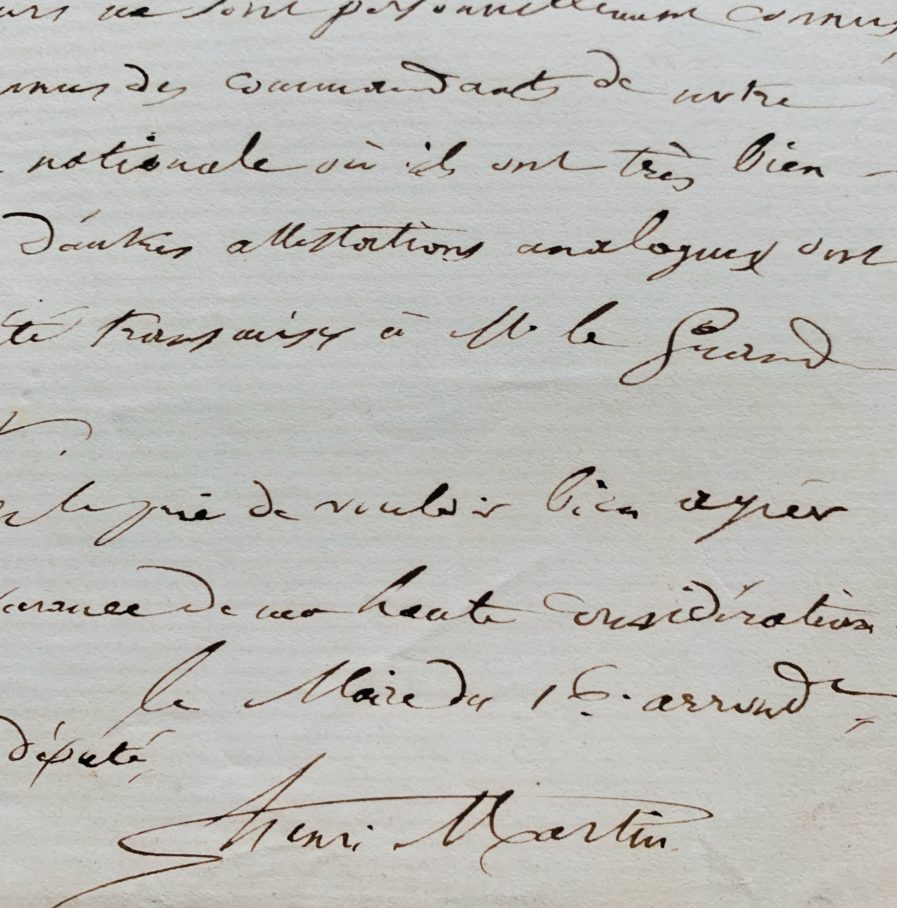 ne sont personnellement connus,
des commandants de notre
nationale où ils ont très bien
D'autres attestations analogues ont
été transmises à Mr le Grand
prie de vouloir bien agréer
de ma haute considération
le Maire du 16e. arrondt,
député,
Henri Martin